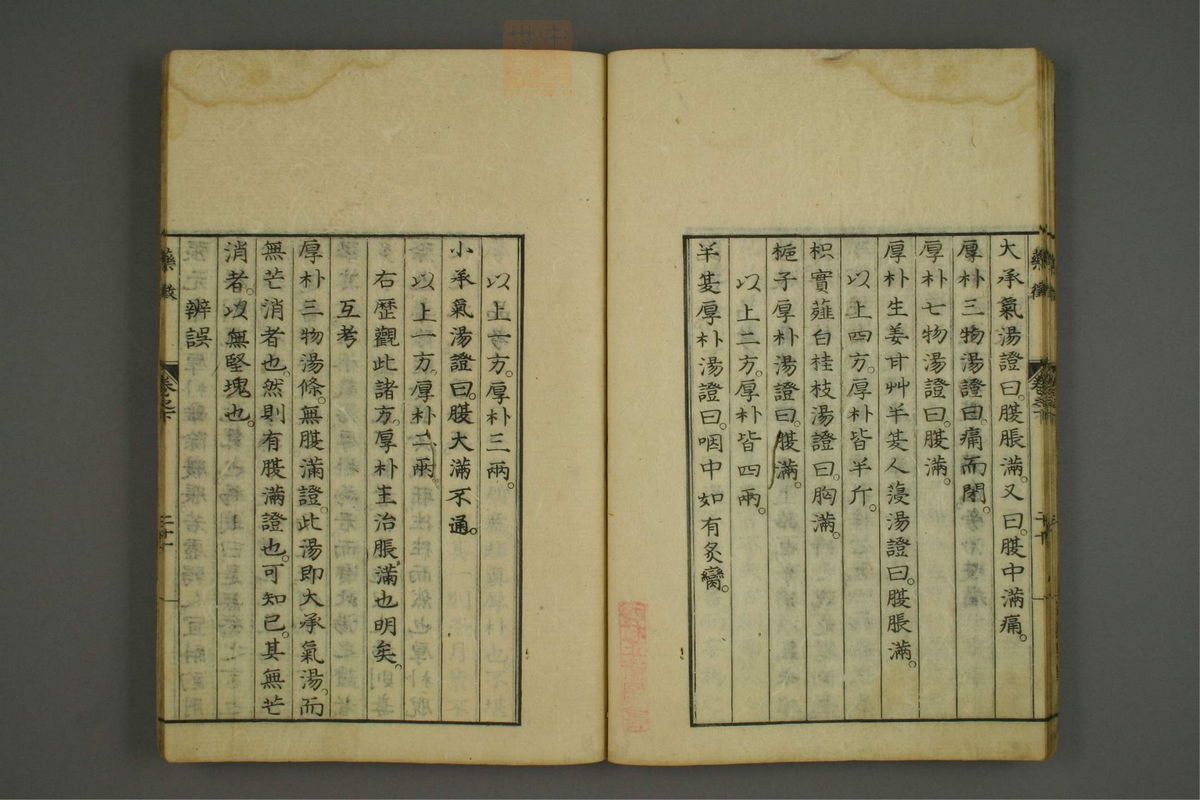 大承氣湯證曰。腹脹滿。又曰。腹中滿痛。
厚朴三物湯證曰。痛而閉。
厚朴七物湯證曰。腹滿。
厚朴生姜甘艸半夏人蓡湯證曰。腹脹滿。
以上四方。厚朴皆半斤。
枳實薤白桂枝湯證曰。胸滿。
梔子厚朴湯證曰。腹滿。
以上二方。厚朴皆四兩。
半夏厚朴湯證曰。咽中如有炙臠。
以上一方。厚朴三兩。
小承氣湯證曰。腹大滿不通。
以上一方。厚朴二兩。
右歷觀此諸方。厚朴主治脹滿也明矣。
互考
厚朴三物湯條。無腹滿證。此湯即大承氣湯。而
無芒消者也。然則有腹滿證也。可知已。其無芒
消者。以無堅塊也。
辨誤
藥徵
卷之下